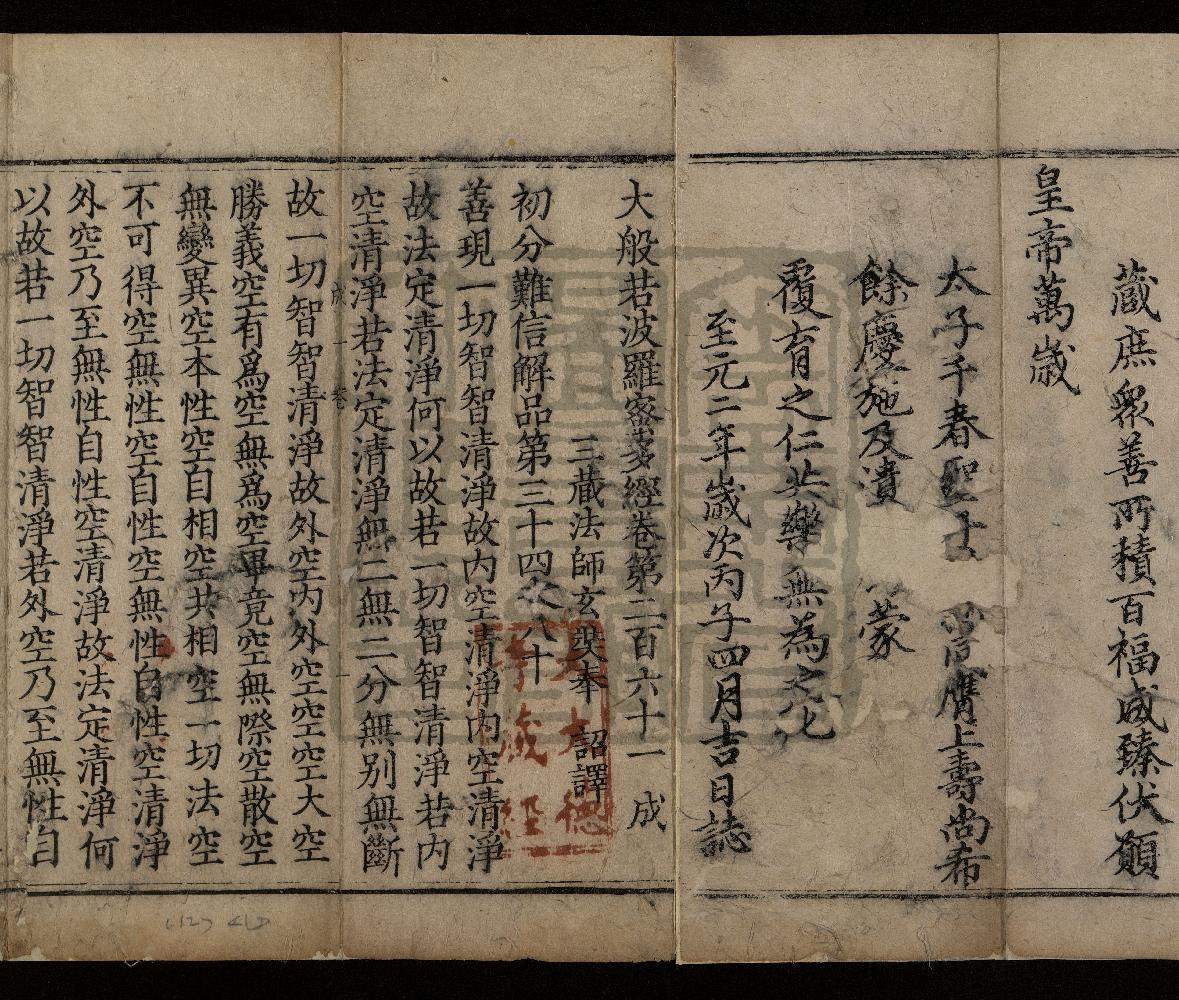 藏庶衆善所積百福咸臻伏願
皇帝萬歲
太子千春聖 膺上壽尚布
餘慶施及潰 蒙
覆育之仁共樂無為之化
至元二年歲次丙子四月吉日誌
大般若波羅蜜多經卷第二百六十一 成
三藏法師玄奘奉 詔譯
初分難信解品第三十四之八十
善現一切智智清淨故內空清淨內空清淨
故法定清淨何以故若一切智智清淨若內
空清淨若法定清淨無二無二分無別無斷
故一切智智清淨故外空內外空空空大空
勝義空有爲空無爲空畢竟空無際空散空
無變異空本性空自相空共相空一切法空
不可得空無性空自性空無性自性空清淨
外空乃至無性自性空清淨故法定清淨何
以故若一切智智清淨若外空乃至無性自